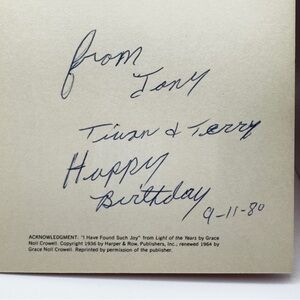 from
Tony
Tivan & Terry
Happy
Birthday
9-11-80
ACKNOWLEDGMENT: "I Have Found Such Joy" from Light of the Years by Grace
Noll Crowell. Copyright 1936 by Harper & Row, Publishers, Inc., renewed 1964 by
Grace Noll Crowell. Reprinted by permission of the publisher.